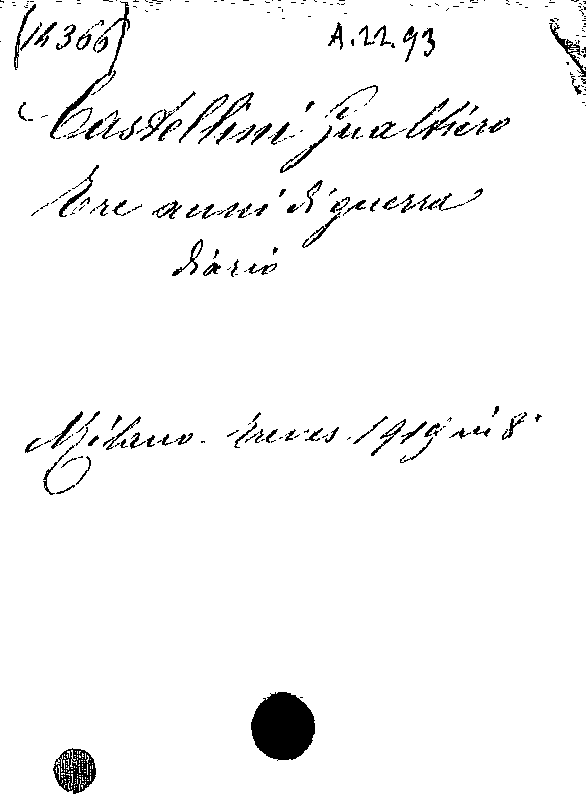 (14366) A.22.93
Castellini Gualtiero
Tre anni di guerra
diario
Milano. Treves. 1919 in 8°